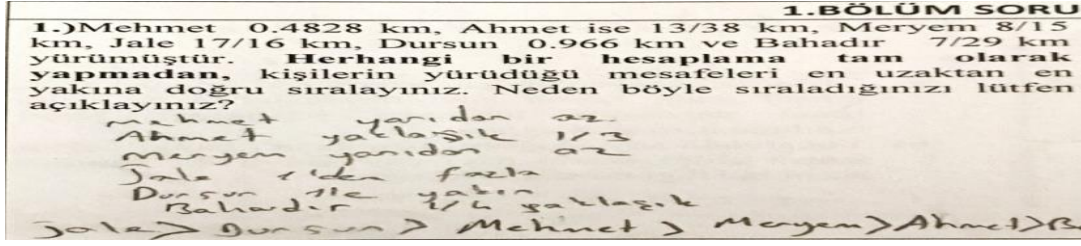 1.BÖLÜM SORU
1.)Mehmet 0.4828 km, Ahmet ise 13/38 km, Meryem 8/15
km, Jale 17/16 km, Dursun 0.966 km ve Bahadır 7/29 km
yürümüştür. Herhangi bir hesaplama tam olarak
yapmadan, kişilerin yürüdüğü mesafeleri en uzaktan en
yakına doğru sıralayınız. Neden böyle sıraladığınızı lütfen
açıklayınız?
mehmet yarıdan az
Ahmet yaklaşık 1/3
meryem yarıdan az
Jale 1'den fazla
Dursun 1'e yakın
Bahardır 1/4 yaklaşık
Jale > Dursun > Mehmet > Meryem > Ahmet > B